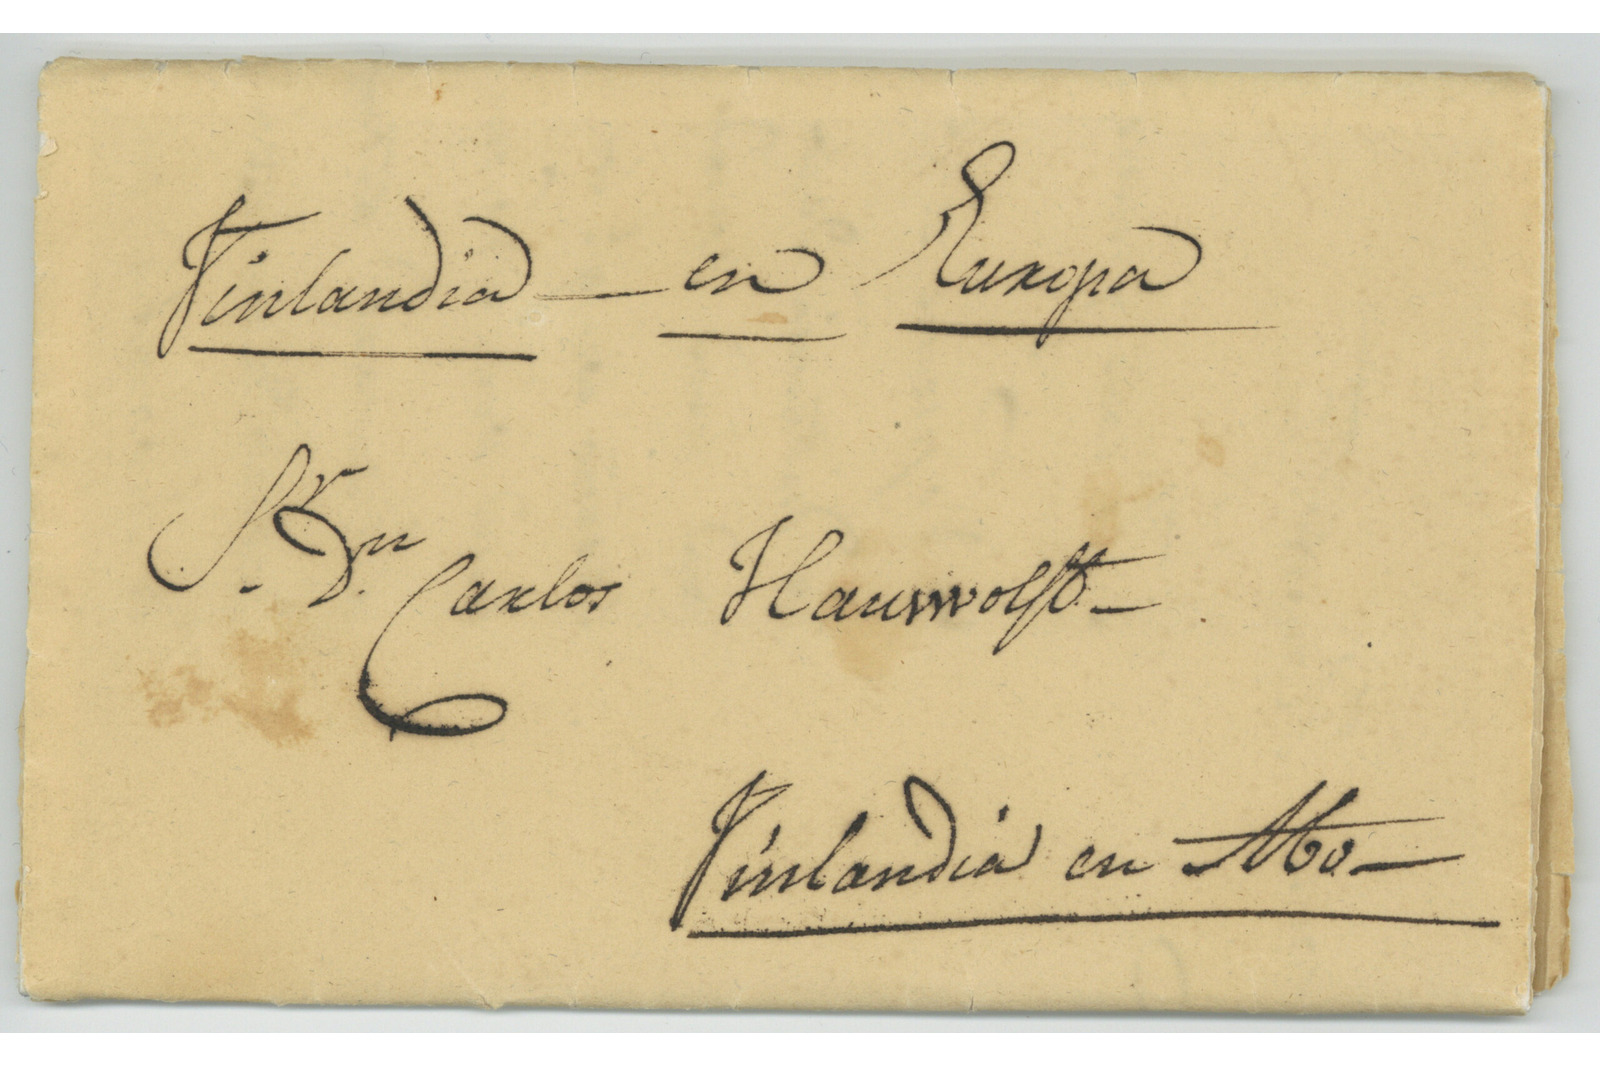 Finlandia en Europa
Sr. Dn. Carlos Hauswolff
Finlandia en Abo